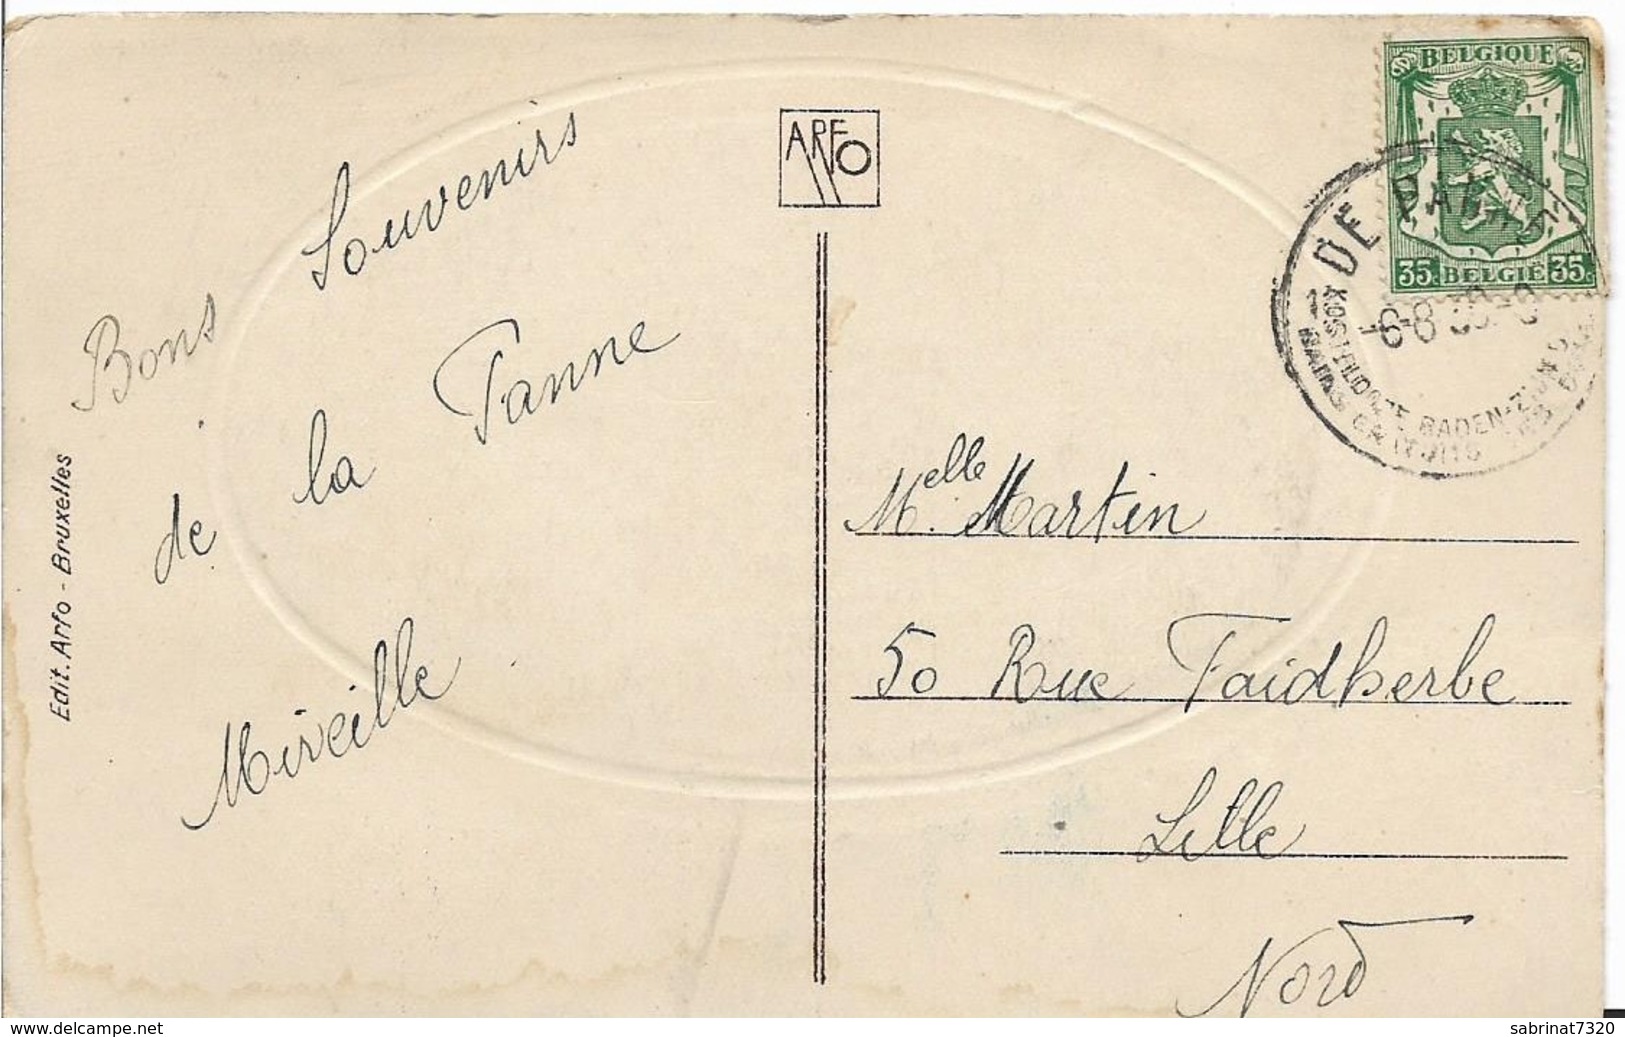 Bons Souvenirs
de la Panne
Mireille
Edit. Arfo - Bruxelles
ARFO
BELGIQUE
35c BELGIË 35c
DE PANNE
-6-8
BADEN-ZON
BAINS GRATUITS
Melle. Martin
50 Rue Faidherbe
Lille
Nord
www.delcampe.net
sabrinat7320